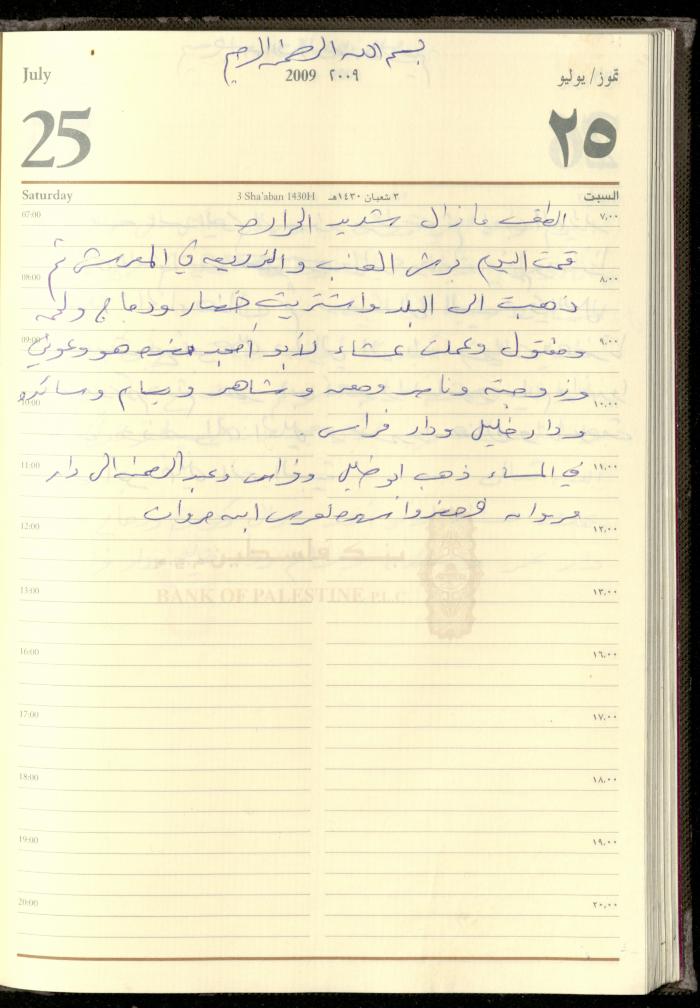 بسم الله الرحمن الرحيم
July 2009 ٢٠٠٩ تموز/يوليو
25 ٢٥
Saturday 3 Sha'aban 1430H ٣ شعبان ١٤٣٠هـ السبت
07:00 الطقس مازال شديد الحرارة ٧,٠٠
قمت اليوم برش العنب والزريعه في المعرش ثم
08:00 ٨,٠٠
ذهبت الى البلد واشتريت خضار ودجاج ولحمه
09:00 ومفتول وعملت عشاء لأبو أحمد هو وعوني ٩,٠٠
وزوجته وناصر وشاهر وبسام
10:00 ١٠,٠٠
ودار خليل ودار فراس
11:00 في المساء ذهب ابو خليل وفراس وعبد الرحمن الى دار ١١,٠٠
مروان فحضروا سهرة لعرس ابنه مروان
12:00 ١٢,٠٠
بنك فلسطين
13:00 BANK OF PALESTINE P.L.C ١٣,٠٠
16:00 ١٦,٠٠
17:00 ١٧,٠٠
18:00 ١٨,٠٠
19:00 ١٩,٠٠
20:00 ٢٠,٠٠